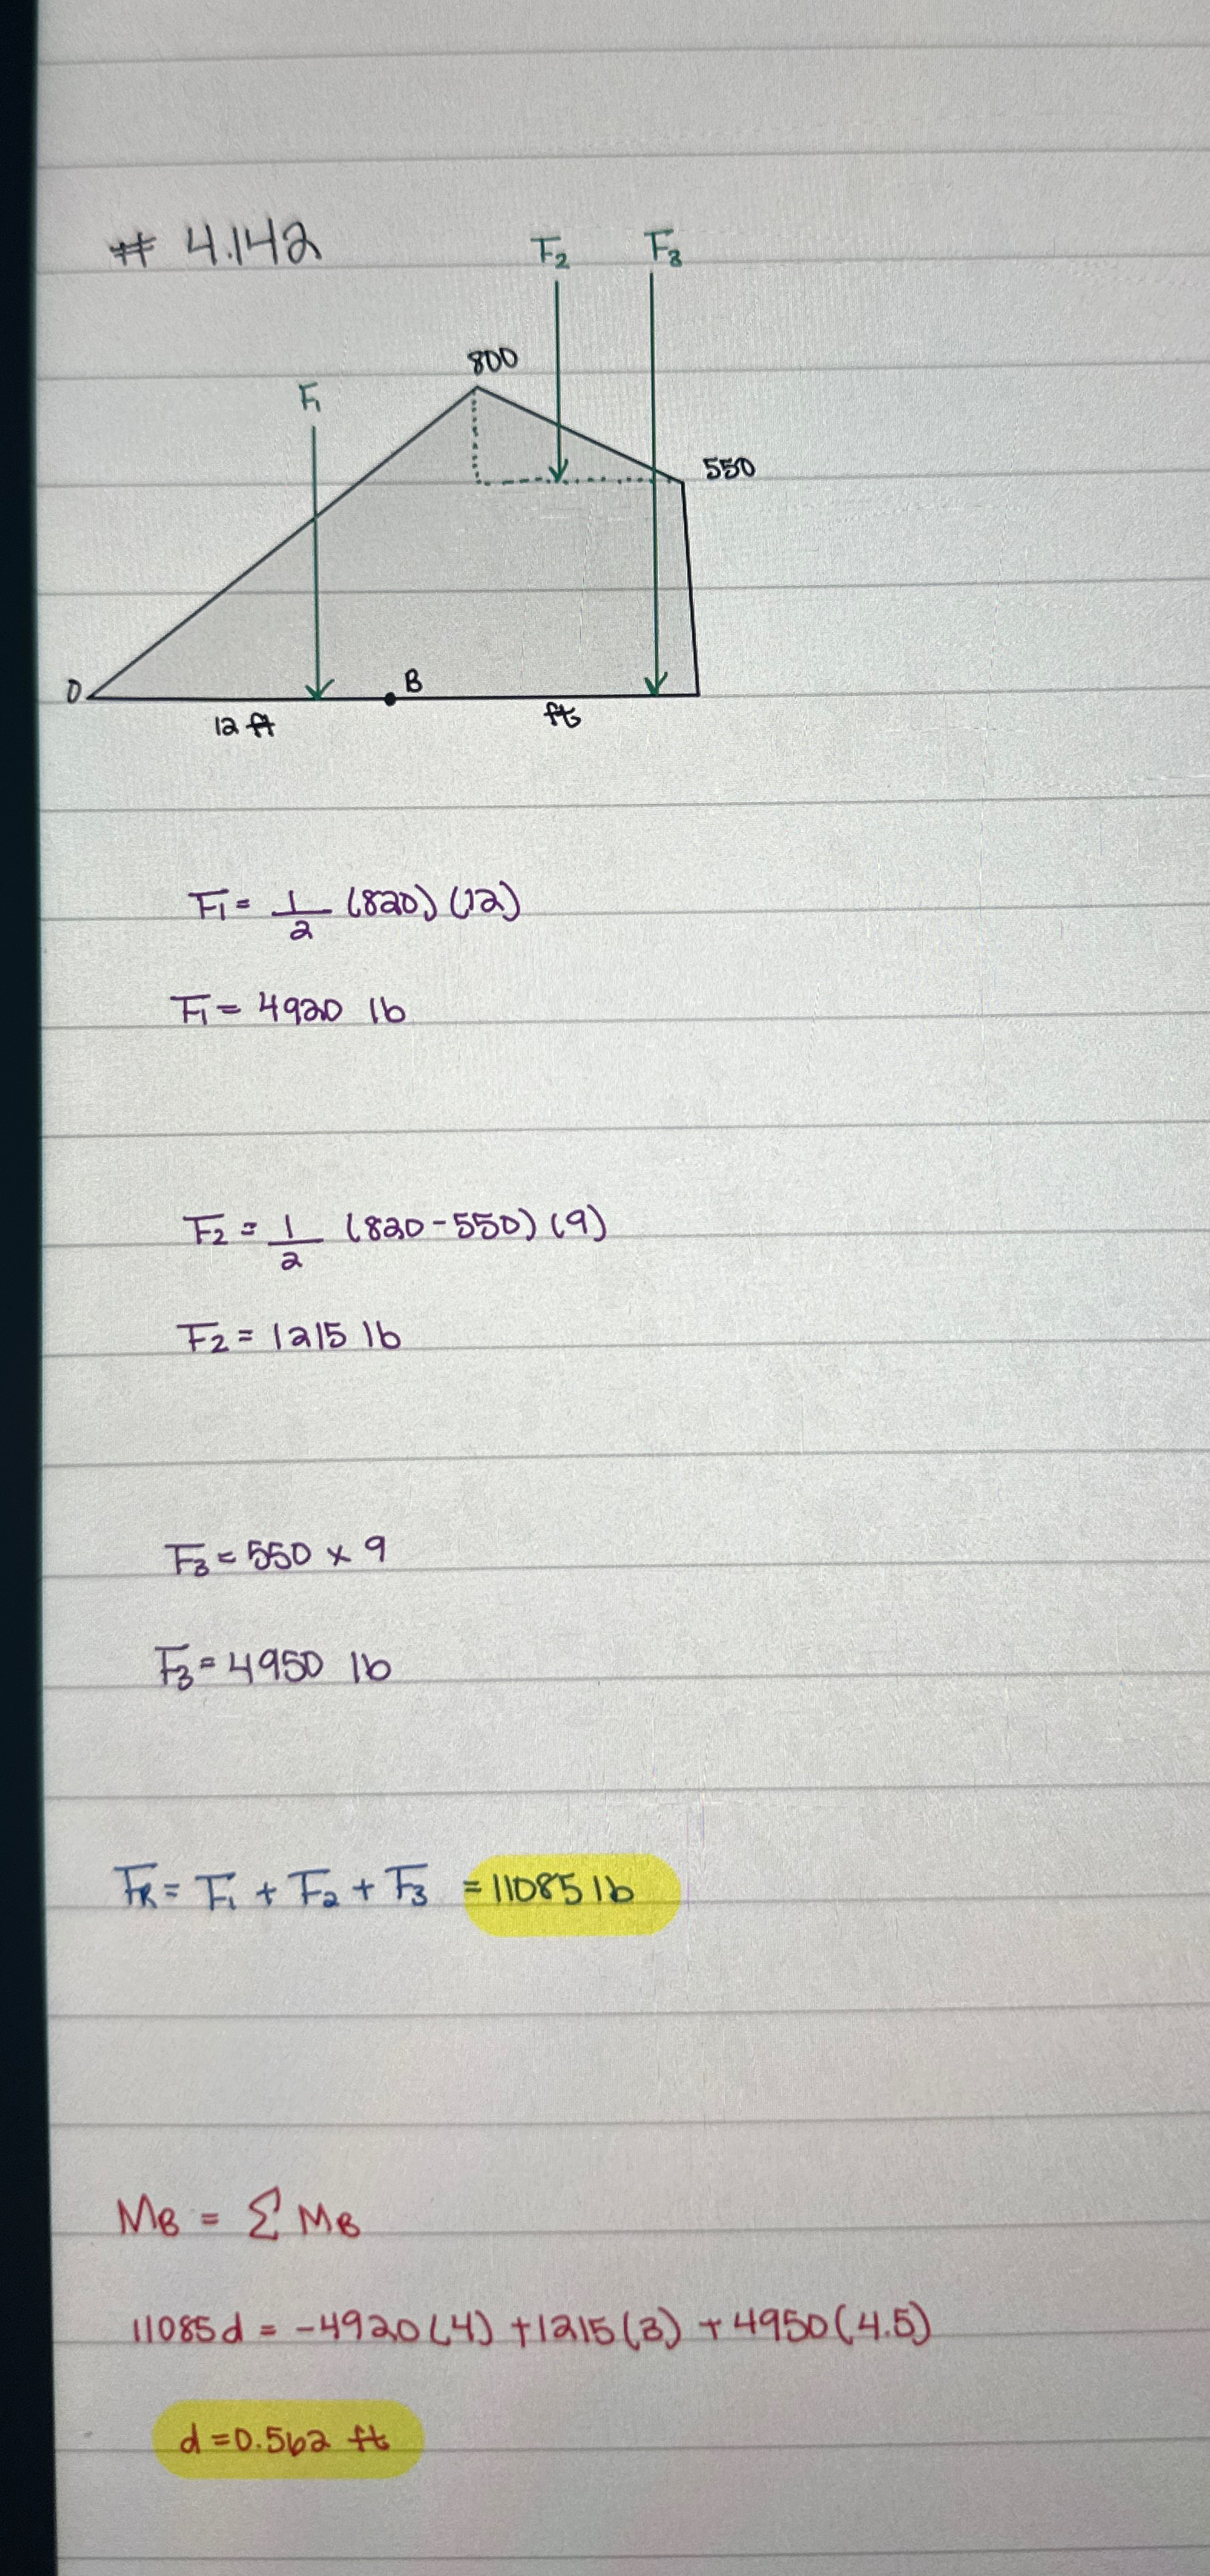 # 4.142
F₂ F₃
800
F₁
550
0
B
12 ft
ft
F₁ = 1/2 (820) (12)
F₁ = 4920 lb
F₂ = 1/2 (820-550) (9)
F₂ = 1215 lb
F₃ = 550 x 9
F₃ = 4950 lb
FR = F₁ + F₂ + F₃ = 11085 lb
MB = Σ MB
11085d = -4920(4) +1215(3) + 4950(4.5)
d = 0.562 ft